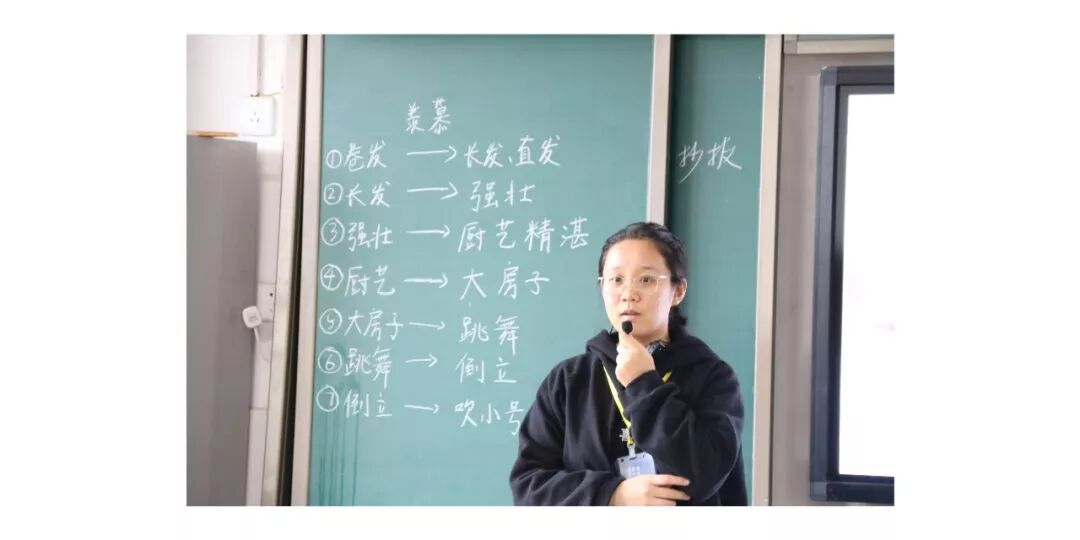 羡慕
①卷发 → 长发、直发
②长发 → 强壮
③强壮 → 厨艺精湛
④厨艺 → 大房子
⑤大房子 → 跳舞
⑥跳舞 → 倒立
⑦倒立 → 吹小号
抄报